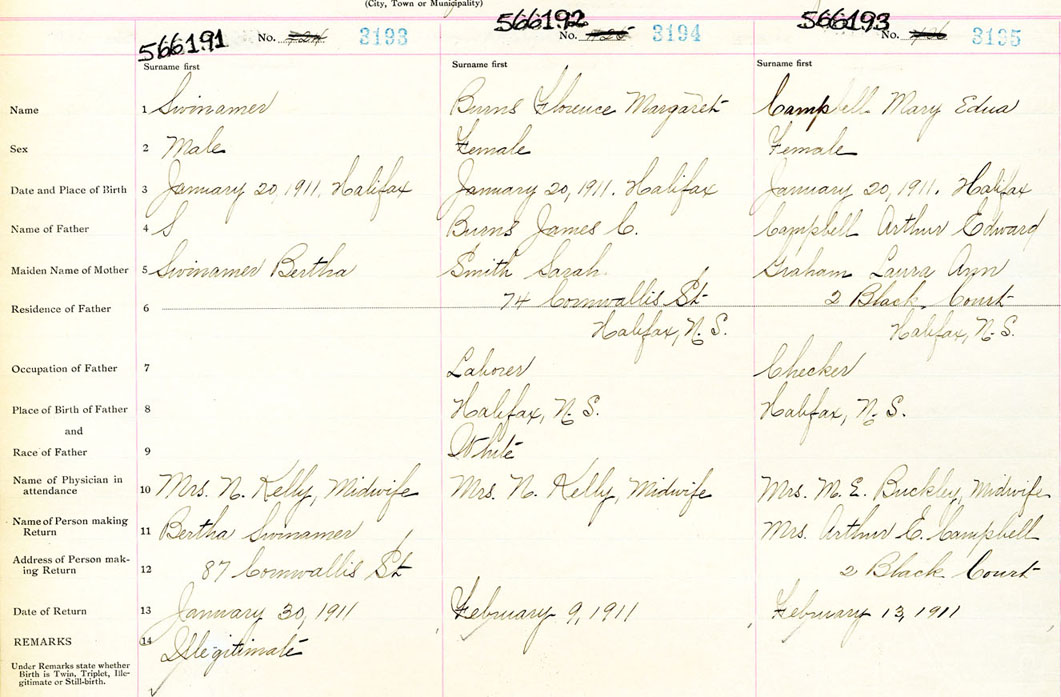 (City, Town or Municipality)
566191 No. 3193 566192 No. 3194 566193 No. 3195
Surname first Surname first Surname first
Name 1 Swinamer Burns Florence Margaret Campbell Mary Edna
Sex 2 Male Female Female
Date and Place of Birth 3 January 20, 1911, Halifax January 20, 1911. Halifax January 20, 1911. Halifax
Name of Father 4 S Burns James C. Campbell Arthur Edward
Maiden Name of Mother 5 Swinamer Bertha Smith Sarah Graham Laura Ann
Residence of Father 6 74 Cornwallis St 2 Black Court
Halifax, N.S. Halifax, N.S.
Occupation of Father 7 Laborer Checker
Place of Birth of Father 8 Halifax, N.S. Halifax, N.S.
and
Race of Father 9 White
Name of Physician in attendance 10 Mrs. N. Kelly, Midwife Mrs. N. Kelly, Midwife Mrs. M. E. Buckley, Midwife
Name of Person making Return 11 Bertha Swinamer Mrs. Arthur E. Campbell
Address of Person making Return 12 87 Cornwallis St 2 Black Court
Date of Return 13 January 30, 1911 February 9, 1911 February 13, 1911
REMARKS 14 Illegitimate
Under Remarks state whether
Birth is Twin, Triplet, Ille-
gitimate or Still-birth.